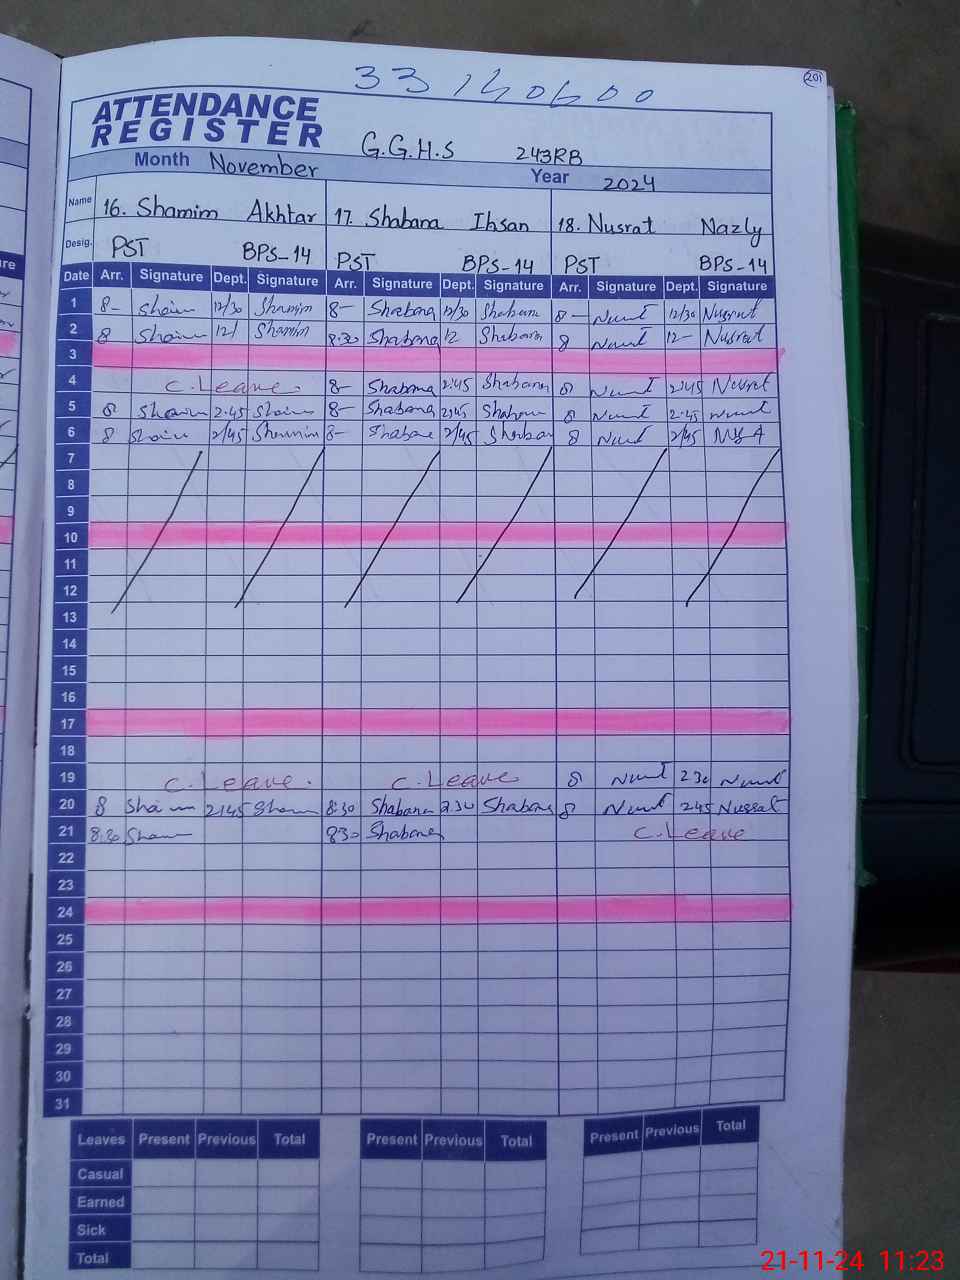 201
33140600
ATTENDANCE
REGISTER
G.G.H.S 243RB
Month November Year 2024
Name 16. Shamim Akhtar 17. Shabana Ihsan 18. Nusrat Nazly
Desig. PST BPS-14 PST BPS-14 PST BPS-14
Date Arr. Signature Dept. Signature Arr. Signature Dept. Signature Arr. Signature Dept. Signature
1 8- 12/30 Shamim 8- Shabana 12/30 Shabana 8- 12/30 Nusrat
2 8 12/ Shamim 8.30 Shabana 12 Shabana 8 12- Nusrat
3
4 C.Leave. 8- Shabana 2:45 Shabana 8 2:45 Nusrat
5 8 2.45 8- Shabana 2:45 8 2.45
6 8 2/45 Shamim 8- 2/45 8 2/45
7
8
9
10
11
12
13
14
15
16
17
18
19 C.Leave. C.Leave 8 230
20 8 2145 8:30 Shabana 2.30 Shabana 8 245 Nusrat
21 8:30 830 Shabana C.Leave
22
23
24
25
26
27
28
29
30
31
Leaves Present Previous Total Present Previous Total Present Previous Total
Casual
Earned
Sick
Total
21-11-24 11:23